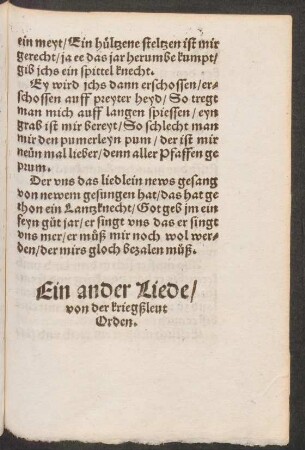 ein meyt/Ein hültzene steltzen ist mir
gerecht/ja ee das jar herumbe kumpt/
gib jchs ein spittel knecht.
Ey wird jchs dann erschossen/er-
schossen auff preyter heyd/So tregt
man mich auff langen spiessen/eyn
grab ist mir bereyt/So schlecht man
mir den pumerleyn pum/der ist mir
neün mal lieber/denn aller Pfaffen ge
prum.
Der vns das liedlein news gesang
von newem gesungen hat/das hat ge
thon ein Lantzknecht/Got geb jm ein
feyn güt jar/er singt vns das er singt
vns mer/er müß mir noch wol wer-
den/der mirs gloch bezalen müß.
Ein ander Liede/
von der kriegßleut
Orden.